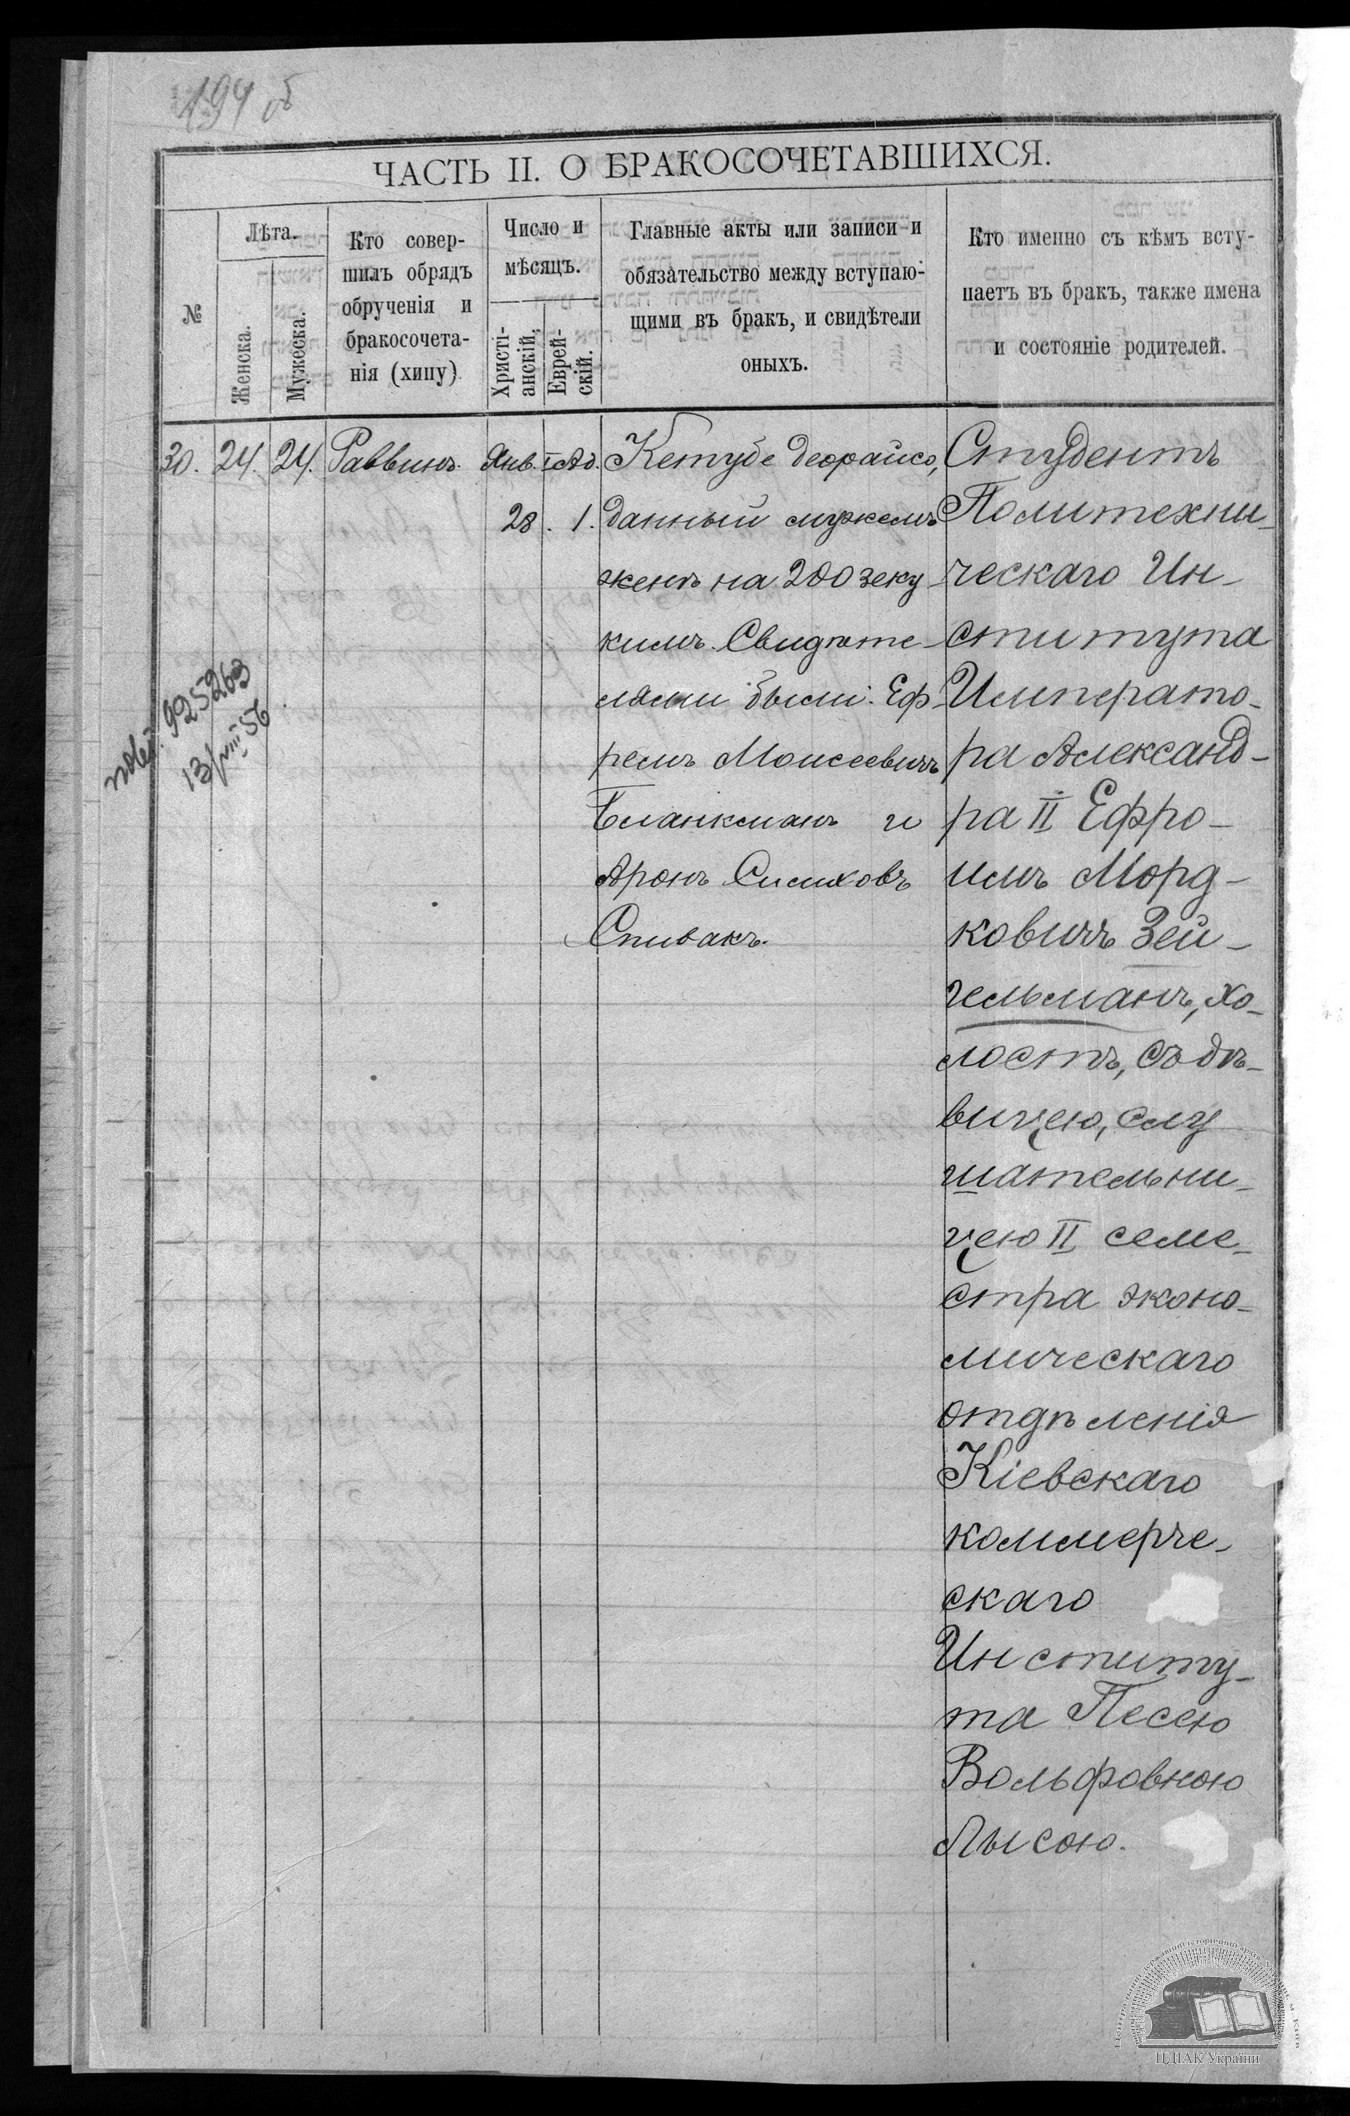 194 об
ЧАСТЬ II. О БРАКОСОЧЕТАВШИХСЯ.
№
Лѣта.
Женска.
Мужеска.
Кто совер-
шилъ обрядъ
обрученія и
бракосочета-
нія (хипу)
Число и
мѣсяцъ.
Христі-
анскій.
Еврей-
скій.
Главные акты или записи и
обязательство между вступаю-
щими въ бракъ, и свидѣтели
оныхъ.
Кто именно съ кѣмъ всту-
паетъ въ бракъ, также имена
и состояніе родителей.
30.
24.
24.
Раввинъ.
Янв.
28.
I Ад.
1.
Кетубе деорайсо,
данный мужемъ
женѣ на 200 зеку-
кимъ. Свидѣте-
лями были: Еф-
ремъ Моисеевичъ
Бланкманъ и
Аронъ Симховъ
Спивакъ.
Студентъ
Политехни-
ческаго Ин-
ститута
Императо-
ра Александ-
ра II Ефро-
имъ Морд-
ковичъ Зей-
гельманъ, хо-
лостъ, съ дѣ-
вицею, слу
шательни-
цею II семе-
стра эконо-
мическаго
отдѣленія
Кіевскаго
коммерче-
скаго
Институ-
та Песею
Вольфовною
Лысою.
925263
13/VIII 56
ЦДІАК України